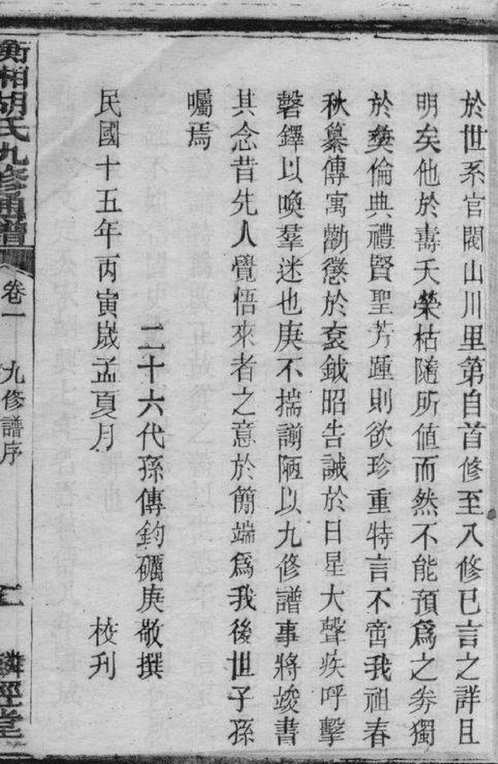 於世系官閥山川里第自首修至八修已言之詳且
明矣他於壽夭榮枯隨所值而然不能預為之券獨
於彝倫典禮賢聖芳踵則欲珍重特言不啻我祖春
秋纂傳寓勸懲於袞鉞昭告誡於日星大聲疾呼擊
磬鐸以喚羣迷也庚不揣謭陋以九修譜事將竣書
其念昔先人覺悟來者之意於簡端為我後世子孫
囑焉
二十六代孫傳鈞礪庚敬撰
民國十五年丙寅歲孟夏月 校刋
衡湘胡氏九修通譜 卷一 九修譜序 麟經堂